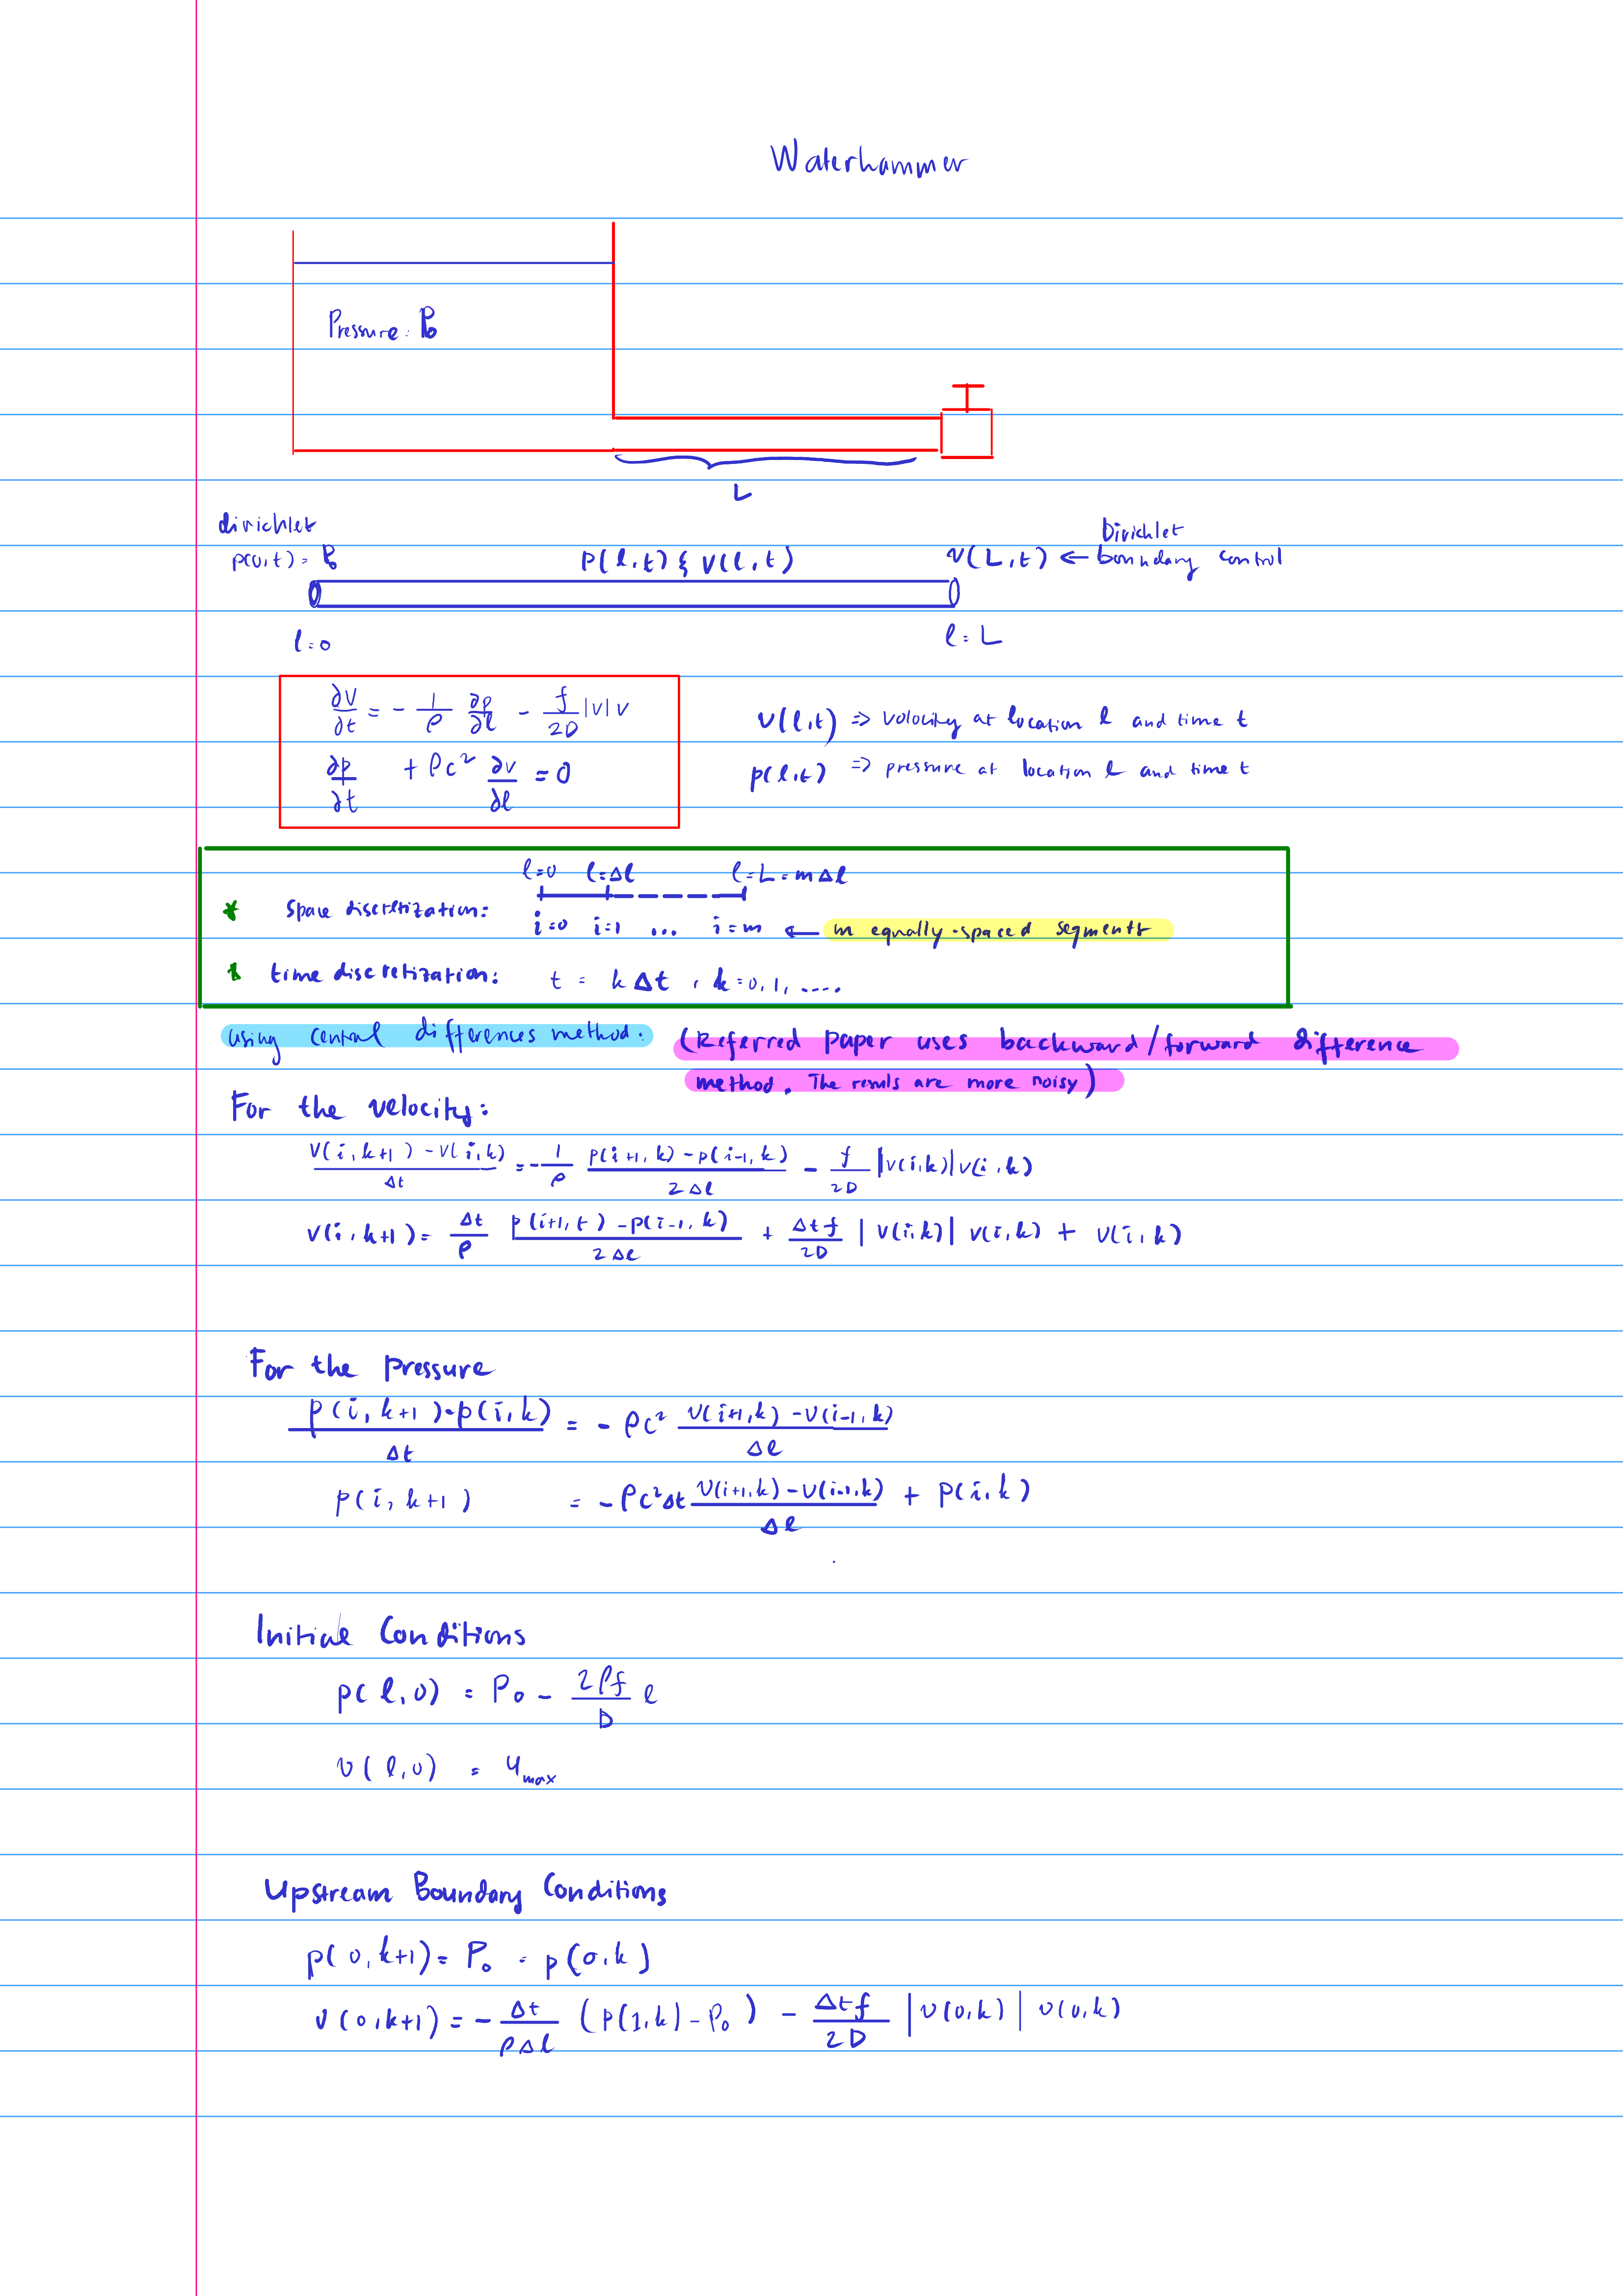 Waterhammer
Pressure: P₀
L
dirichlet
Dirichlet
p(0,t) = P₀
p(l,t) & v(l,t)
v(L,t) ← boundary control
l=0
l = L
∂v/∂t = - 1/ρ ∂p/∂l - f/2D |v| v
v(l,t) => velocity at location l and time t
∂p/∂t + ρc² ∂v/∂l = 0
p(l,t) => pressure at location l and time t
l=0 l=Δl l=L=mΔl
* Space discretization:
i=0 i=1 ... i=m ← m equally-spaced segments
* time discretization: t = kΔt , k=0,1,....
using central differences method: (Referred paper uses backward/forward difference
method. The results are more noisy)
For the velocity:
(v(i,k+1) - v(i,k))/Δt = - 1/ρ (p(i+1,k) - p(i-1,k))/2Δl - f/2D |v(i,k)| v(i,k)
v(i,k+1) = Δt/ρ (p(i+1,t) - p(i-1,k))/2Δl + Δt f/2D |v(i,k)| v(i,k) + v(i,k)
For the pressure
(p(i,k+1) - p(i,k))/Δt = - ρc² (v(i+1,k) - v(i-1,k))/Δl
p(i,k+1) = - ρc²Δt (v(i+1,k) - v(i-1,k))/Δl + p(i,k)
Initial Conditions
p(l,0) = P₀ - 2ρf/D l
v(l,0) = u_max
Upstream Boundary Conditions
p(0,k+1) = P₀ = p(0,k)
v(0,k+1) = - Δt/ρΔl (p(1,k) - P₀) - Δt f/2D |v(0,k)| v(0,k)